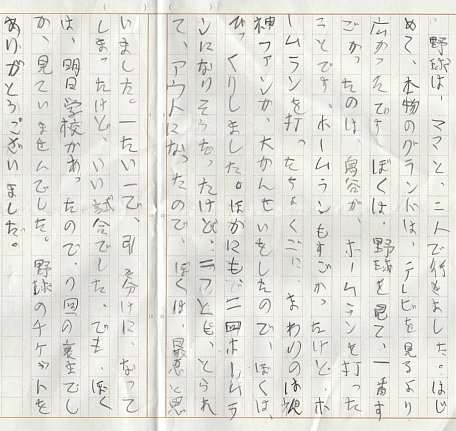 野球は、ママと、二人で行きました。はじ
めて、本物のグランドは、テレビを見るより
広かったです。ぼくは、野球を見て、一番す
ごかったのは、鳥谷が、ホームランを打った
ことです。ホームランもすごかったけど、ホ
ームランを打ったちょくごに、まわりの
神ファンが、大かんせいをしたので、ぼくは、
びっくりしました。ほかにも二回ホームラ
ンになりそうだったけど、二つとも、とられ
て、アウトになったので、ぼくは、最悪と思
いました。一たい一で、引き分けに、なって
しまったけど、いい試合でした。でも、ぼく
は、明日学校があったので、9回の裏までし
か、見ていませんでした。野球のチケットを
ありがとうございました。